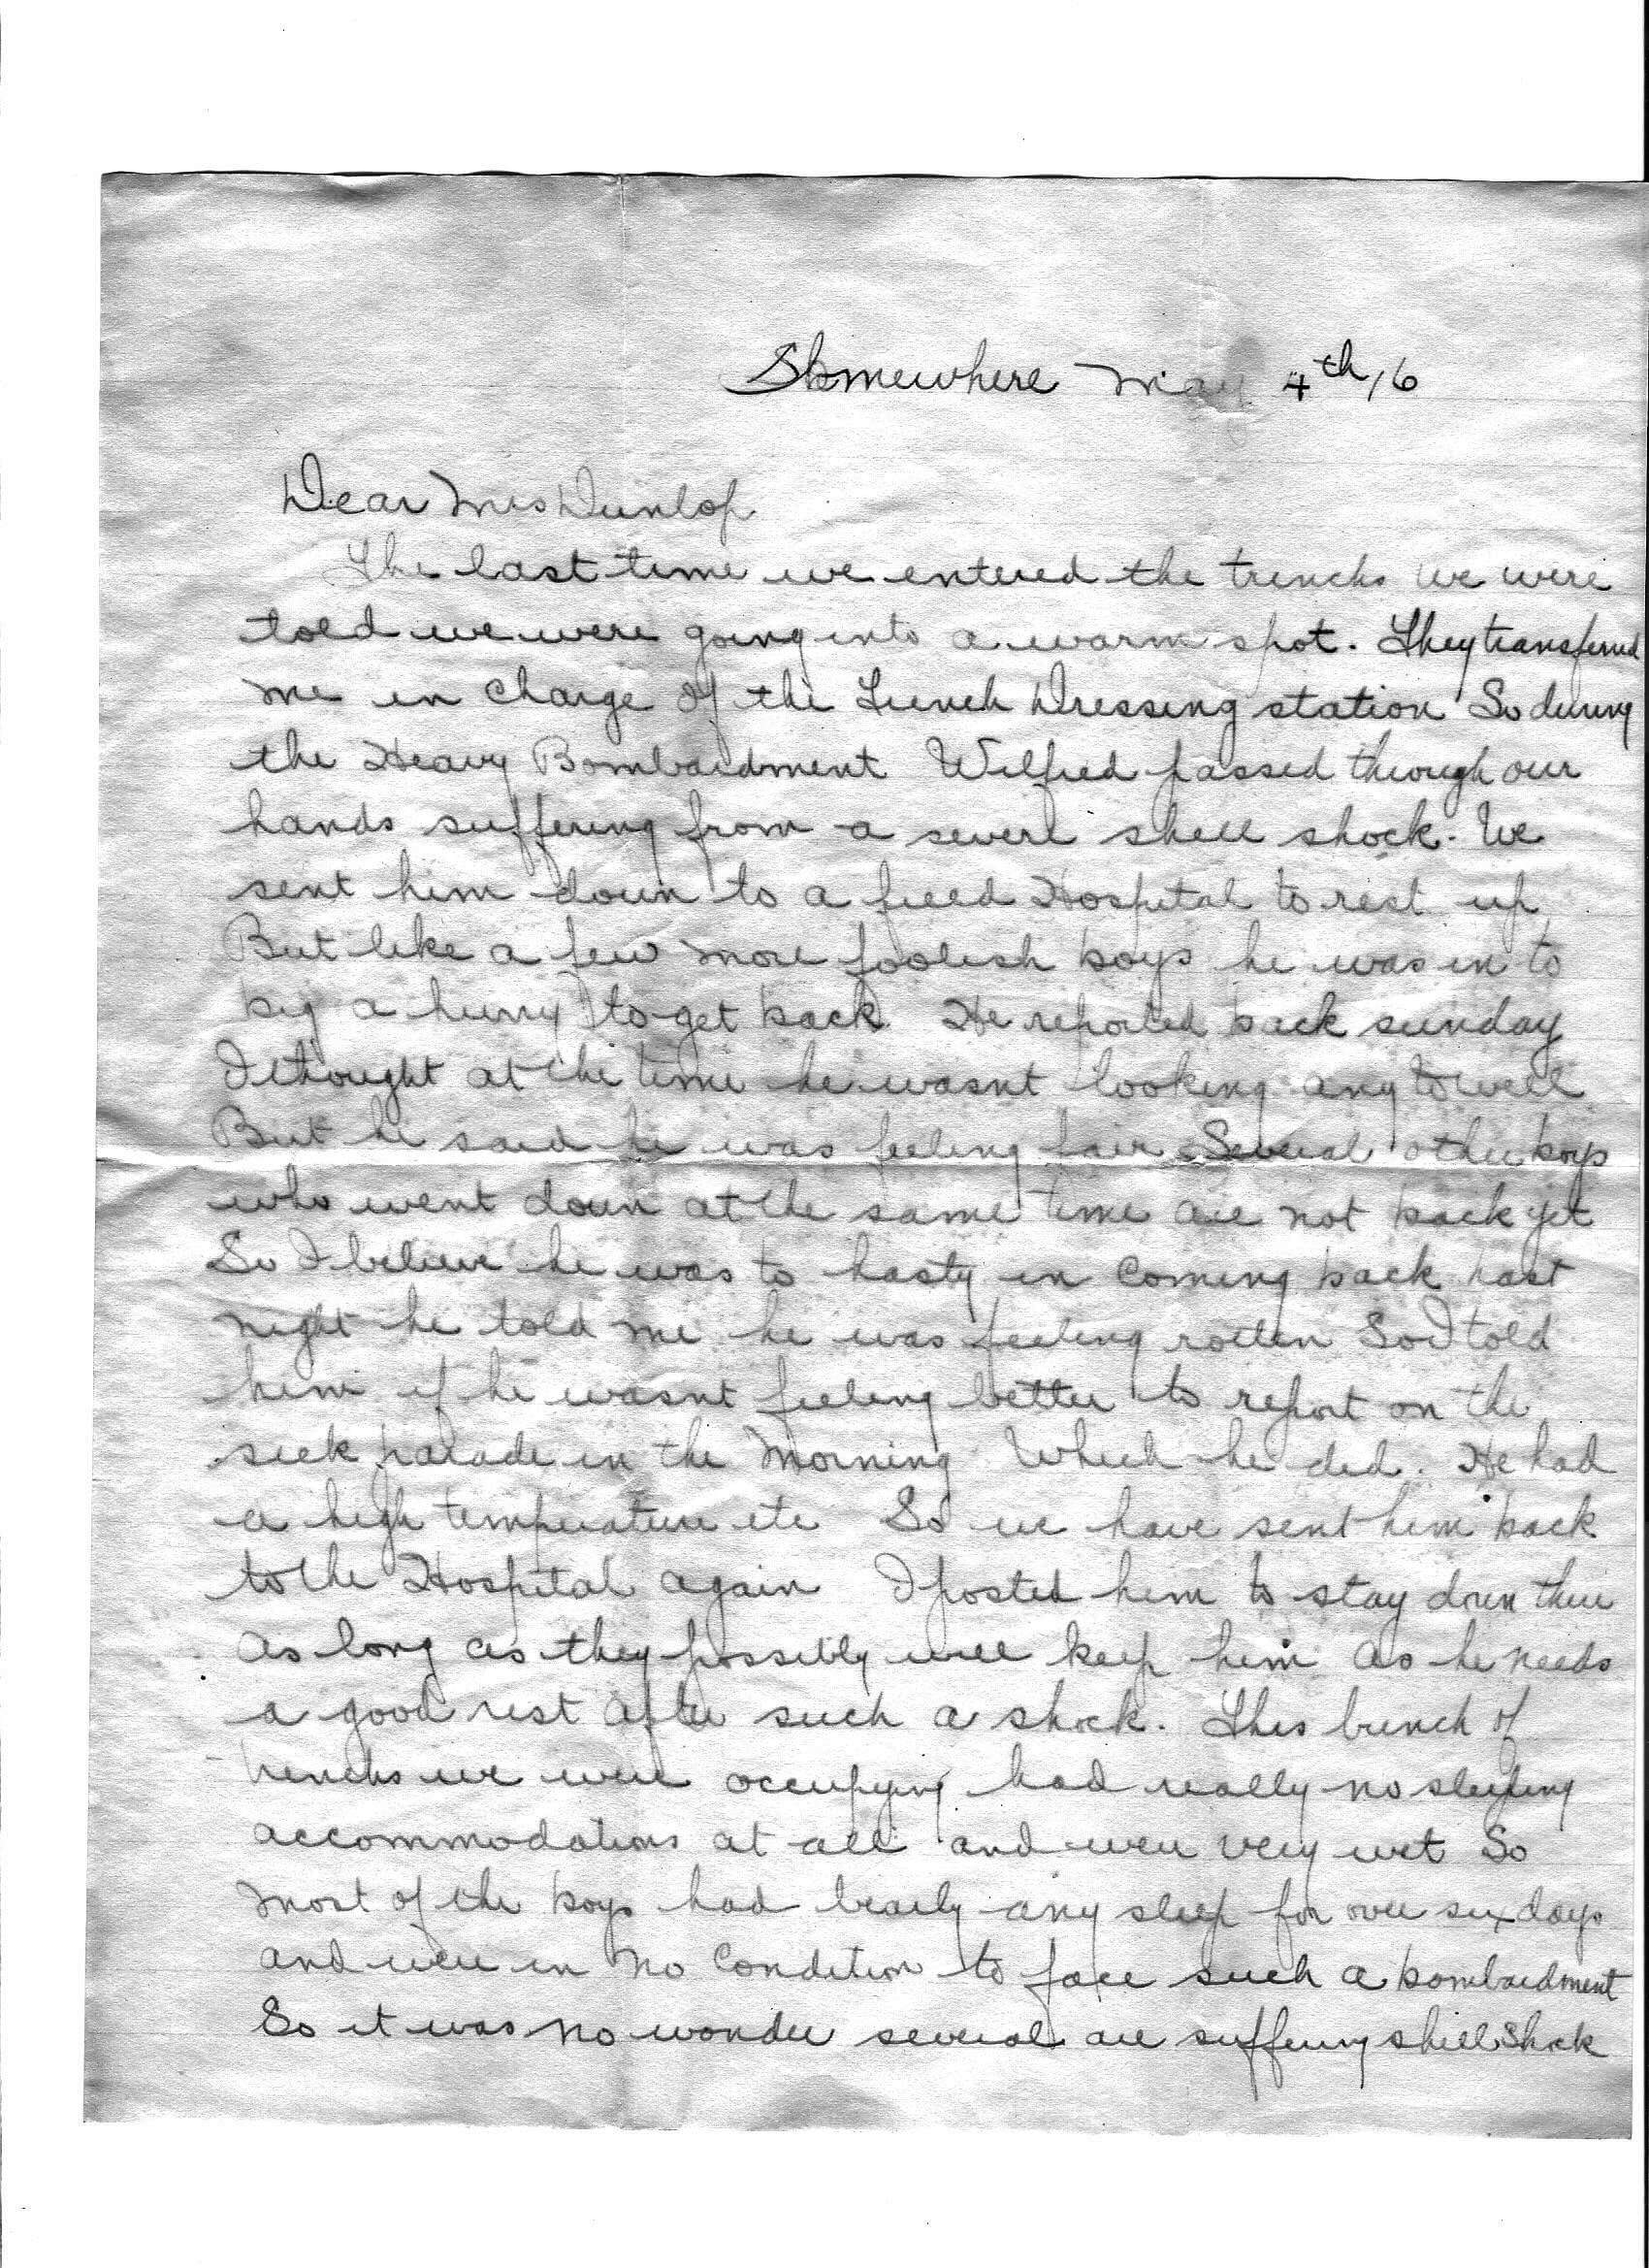 Somewhere May 4th, 16
Dear Mrs Dunlop
The last time we entered the trenchs we were
told we were going into a warm spot. They transferred
me in charge of the Trench Dressing station So during
the Heavy Bombardment Wilfred passed through our
hands suffering from a severe shell shock. We
sent him down to a field Hospital to rest up
But like a few more foolish boys he was in to
big a hurry to get back He reported back sunday
I thought at the time he wasnt looking any to well
But he said he was feeling fair Several other boys
who went down at the same time are not back yet
So I believe he was to hasty in Coming back last
night he told me he was feeling rotten So I told
him if he wasnt feeling better to report on the
sick parade in the Morning Which he did. He had
a high temperature etc So we have sent him back
to the Hospital again I posted him to stay down there
as long as they possibly will keep him as he needs
a good rest after such a shock. This bunch of
trenchs we were occupying had really no sleeping
accommodations at all and were very wet So
most of the boys had bearly any sleep for over six days
and were in no Condition to face such a bombardment
So it was no wonder several are suffering shell shock